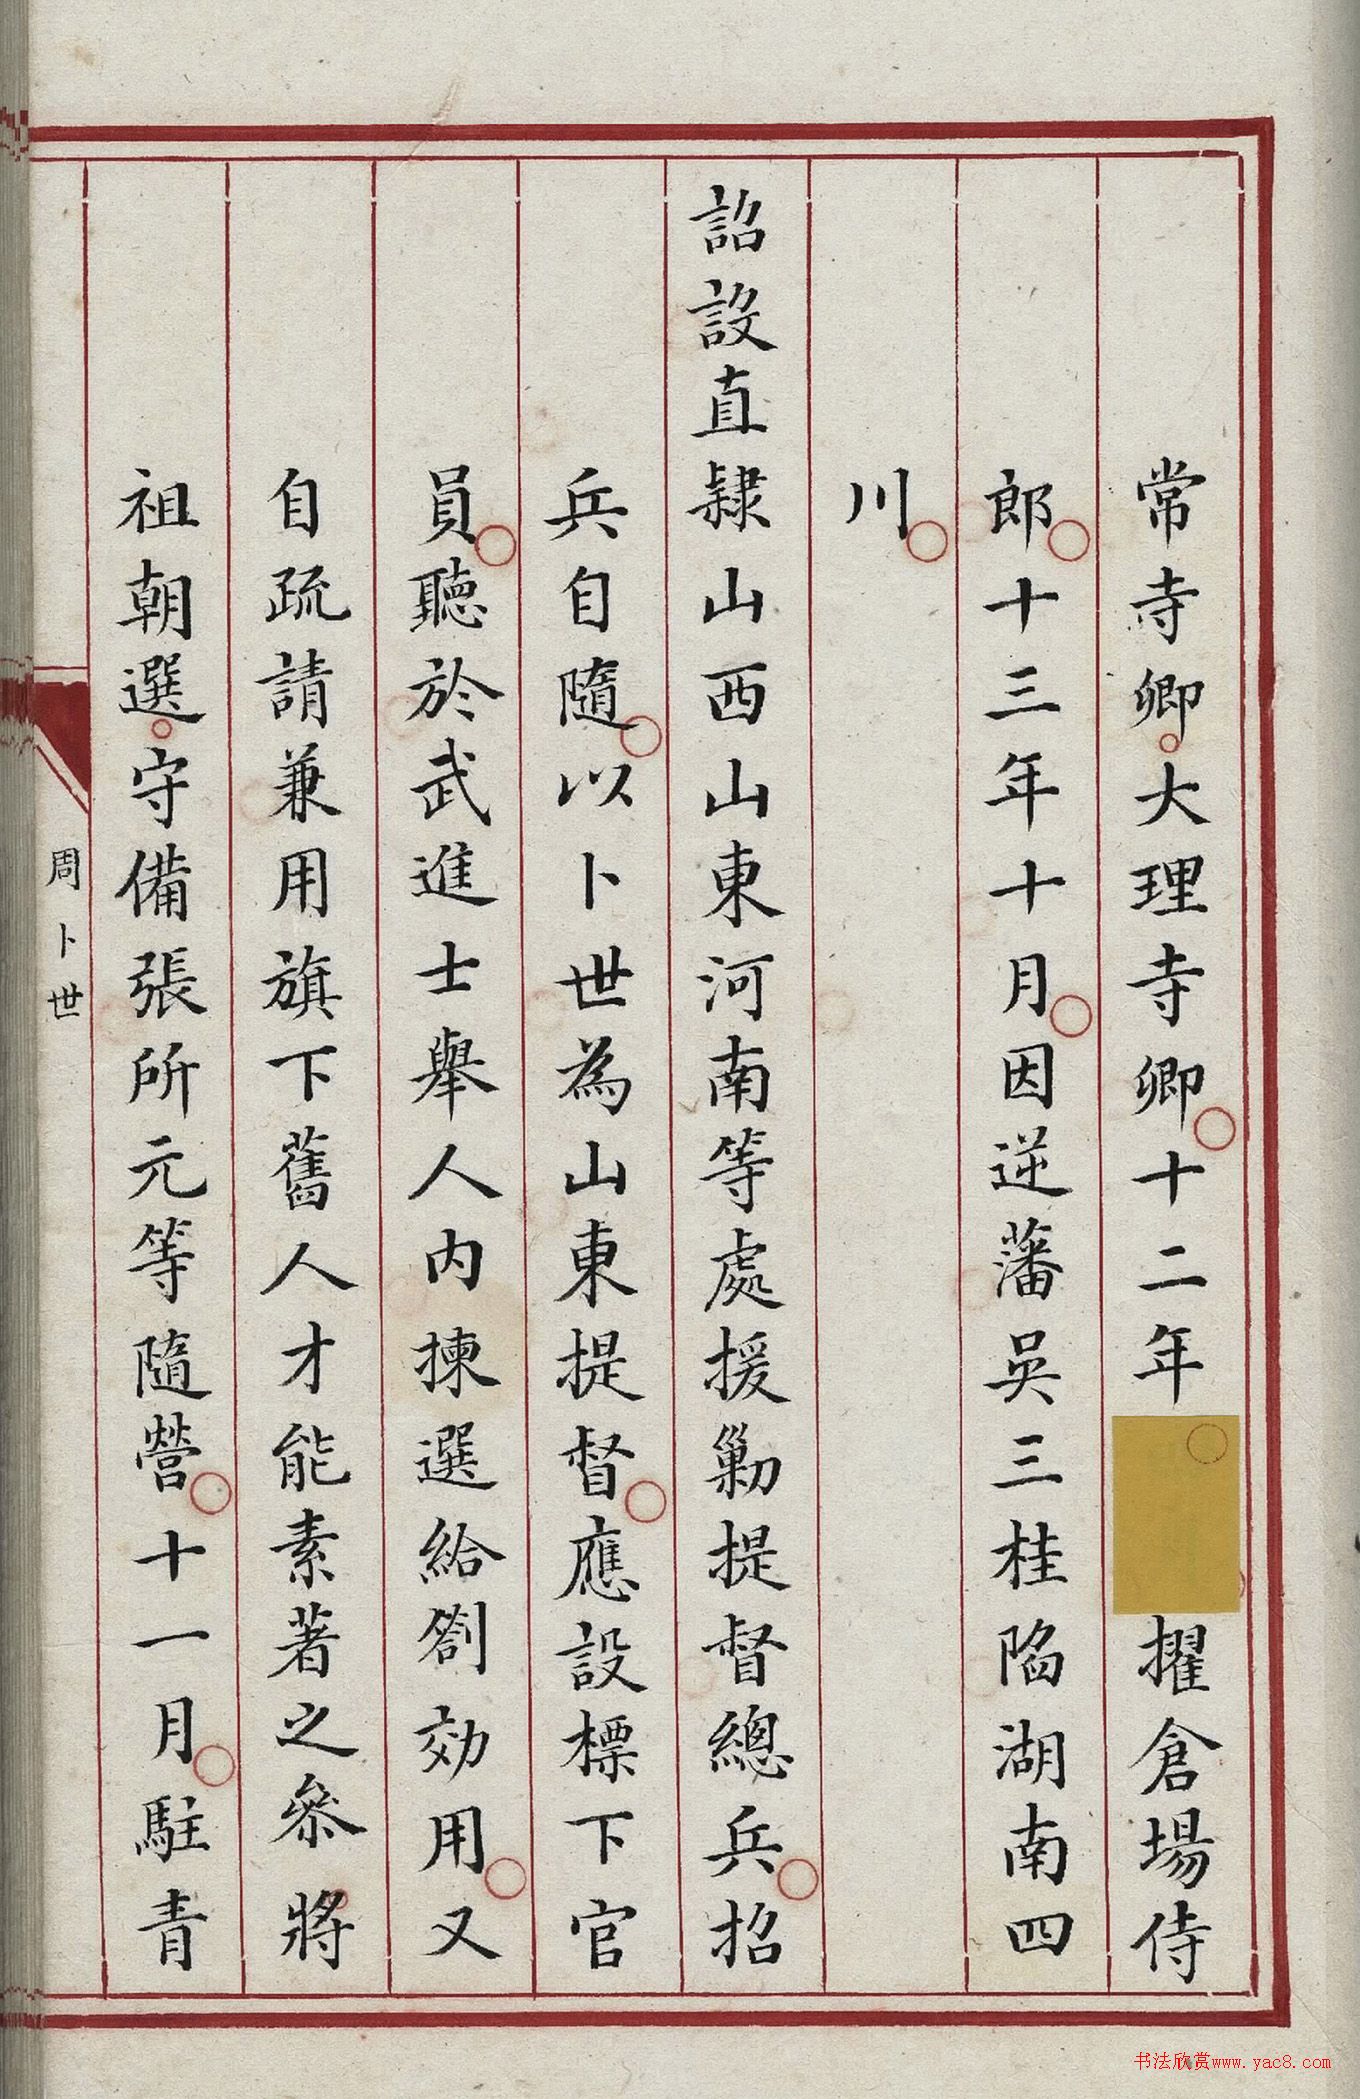 常寺卿大理寺卿十二年擢倉場侍
郎十三年十月因逆藩吳三桂陷湖南四
川
詔設直隸山西山東河南等處援勦提督總兵招
兵自隨以卜世為山東提督應設標下官
員聽於武進士舉人內揀選給劄効用又
自疏請兼用旗下舊人才能素著之叅將
祖朝選守備張所元等隨營十一月駐青
周卜世
书法欣赏www.yac8.com